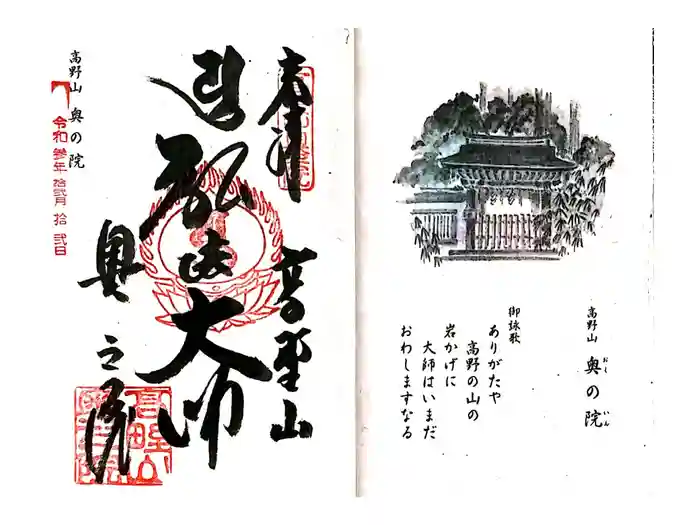 高野山 奥の院
御詠歌
ありがたや
高野の山の
岩かげに
大師はいまだ
おわしますなる
奉拝
高野山
弘法大師
奥之院
高野山 奥の院
令和 参年 拾弐月 拾弐日